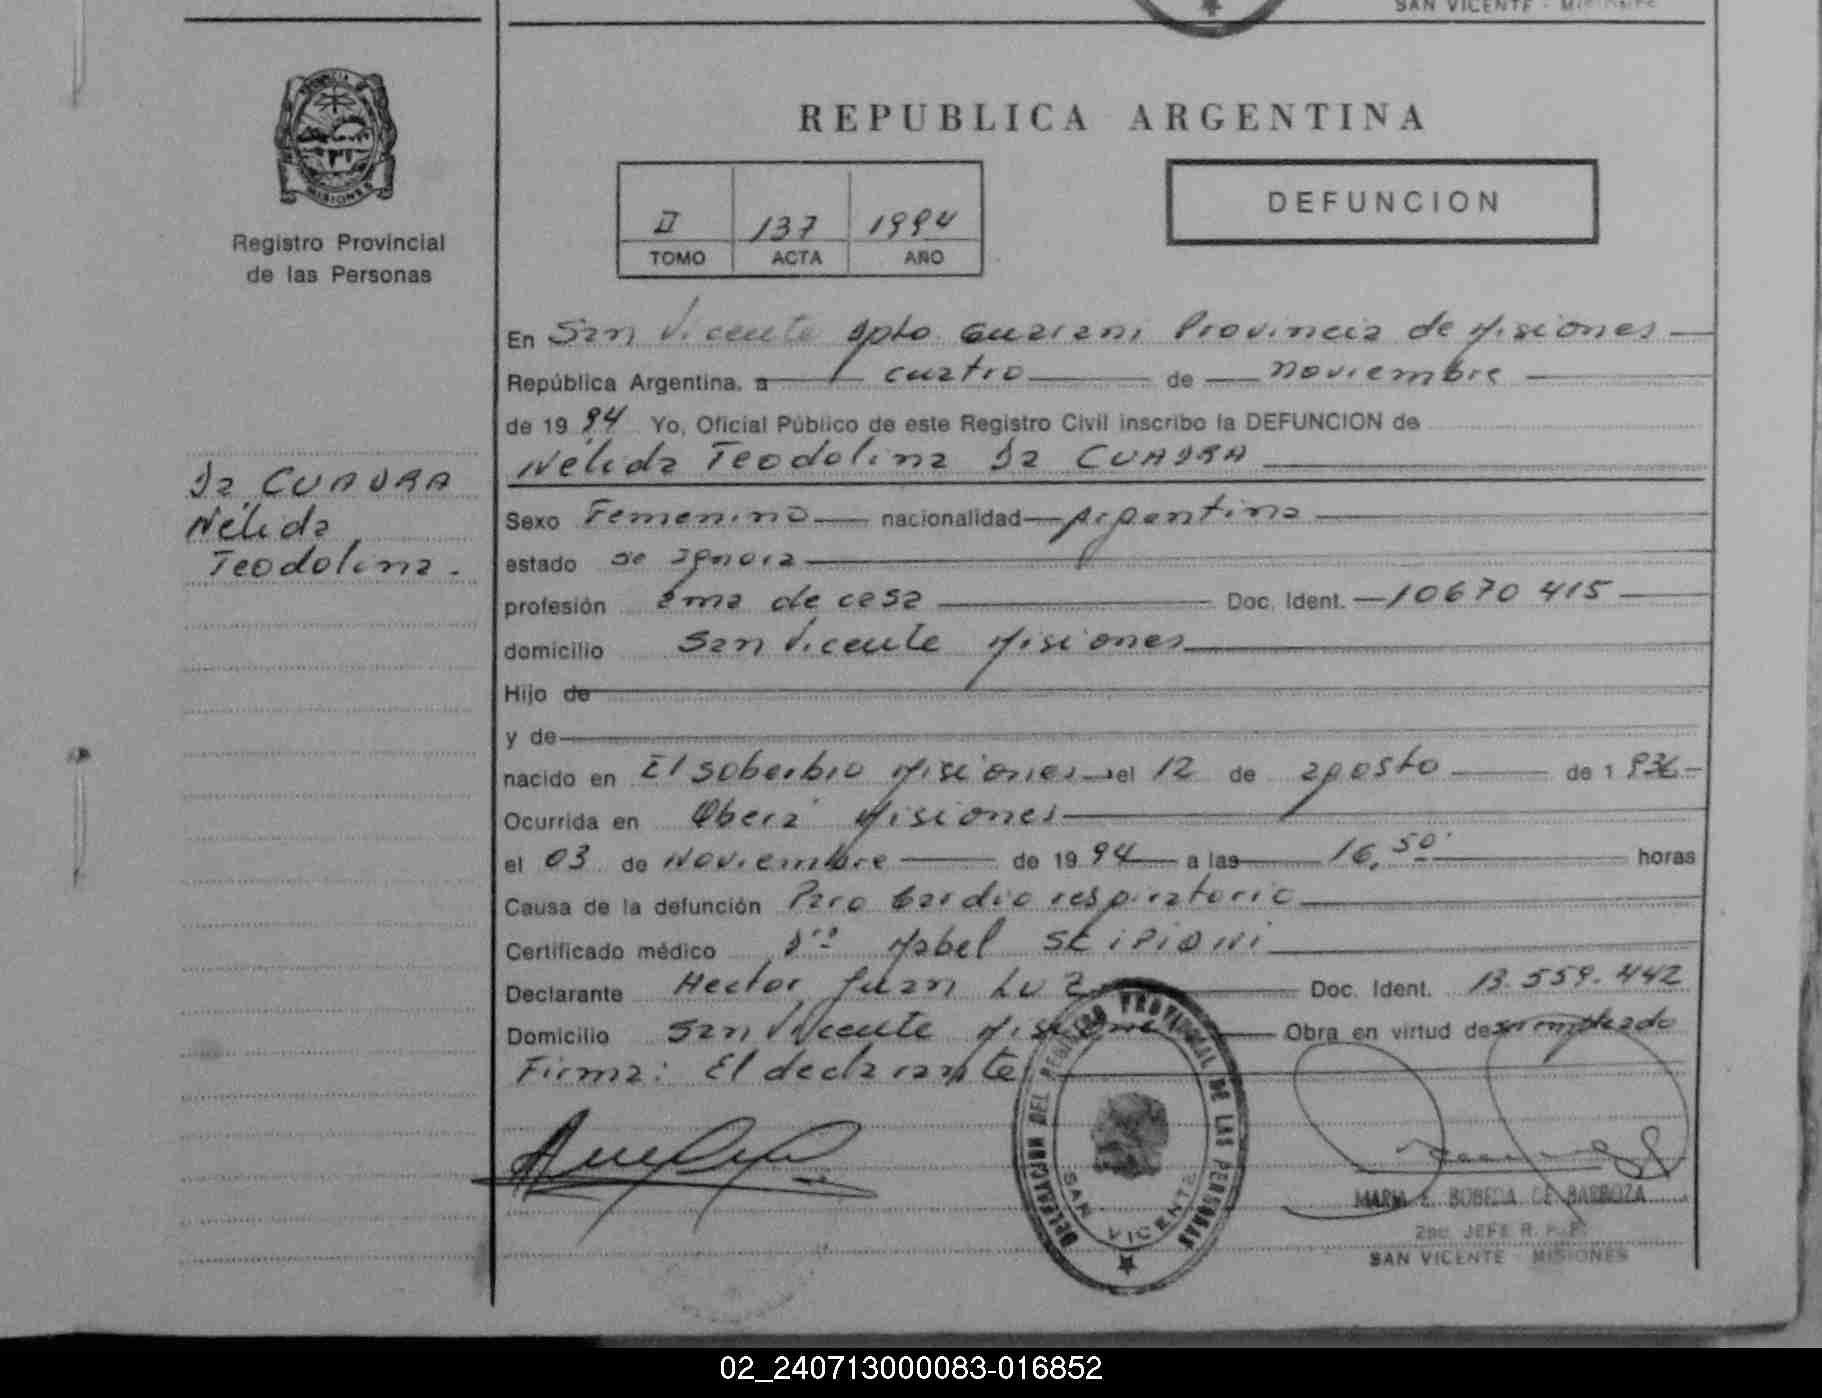 SAN VICENTE - MISIONES
PROVINCIA DE
MISIONES
Registro Provincial
de las Personas
REPUBLICA ARGENTINA
DEFUNCION
II 137 1994
TOMO ACTA AÑO
En San Vicente Dpto Guarani Provincia de Misiones
República Argentina, a cuatro de noviembre
de 1994 Yo, Oficial Público de este Registro Civil inscribo la DEFUNCION de
Nélida Teodolina Da CUADRA
Da CUADRA
Nélida
Teodolina.
Sexo Femenino nacionalidad Argentina
estado se ignora
profesión ama de casa Doc. Ident. 10670415
domicilio San Vicente Misiones
Hijo de
y de
nacido en El soberbio Misiones el 12 de agosto de 1936
Ocurrida en Oberá Misiones
el 03 de Noviembre de 1994 a las 16,50 horas
Causa de la defunción Paro Cardio respiratorio
Certificado médico Dra Mabel SCIPIONI
Declarante Hector Juan Luz Doc. Ident. 13.559.442
Domicilio San Vicente Misiones Obra en virtud de ser empleado
Firma: El declarante
DELEGACION DEL REGISTRO PROVINCIAL DE LAS PERSONAS
SAN VICENTE
MARIA E. BOBEDA DE BARBOZA
2do JEFE R. P. P.
SAN VICENTE - MISIONES
02_240713000083-016852